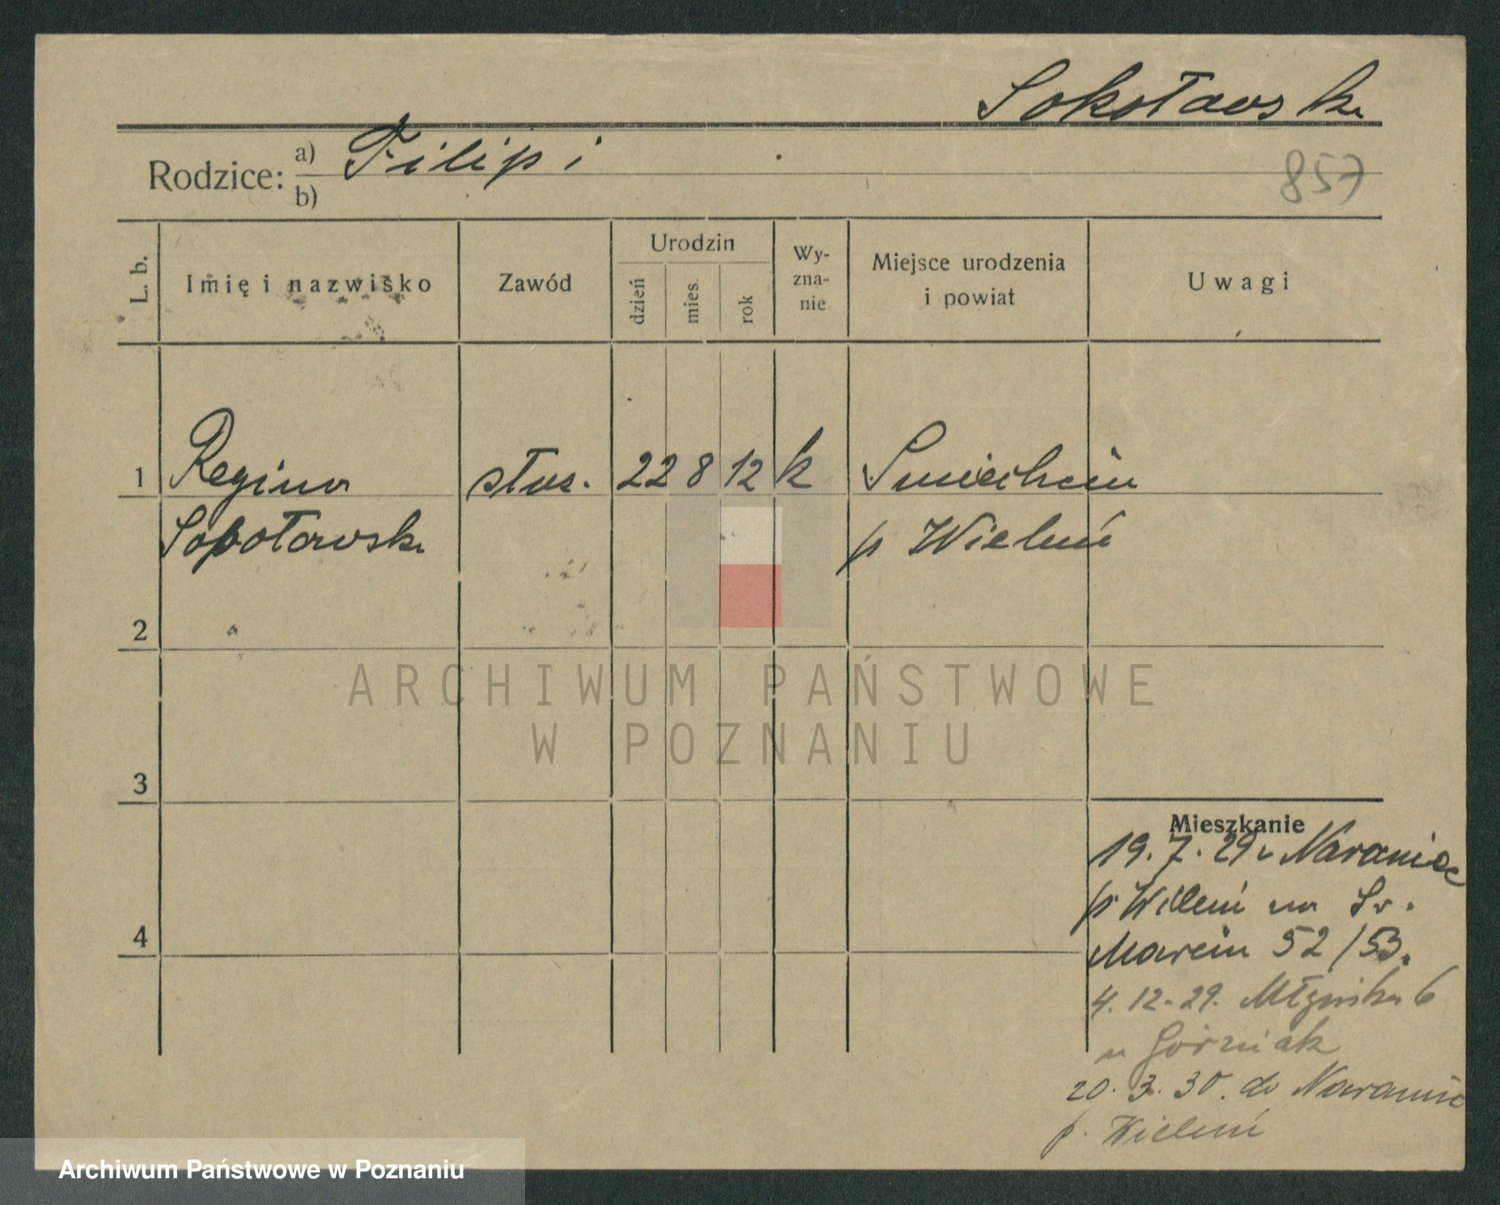 Sokołowska
Rodzice: a) Filip i
b)
857
L. b. Imię i nazwisko Zawód Urodzin dzień mies. rok Wy-zna-nie Miejsce urodzenia i powiat Uwagi
1 Regina służ. 22 8 12 k
p Wieleń
2
3
4
Mieszkanie
19. 7. 29 z
p Wieleń na Św.
Marcin 52/53.
4. 12. 29. Młyńska 6
u Górniak
20. 3. 30. do
p. Wieleń
ARCHIWUM PAŃSTWOWE
W POZNANIU
Archiwum Państwowe w Poznaniu